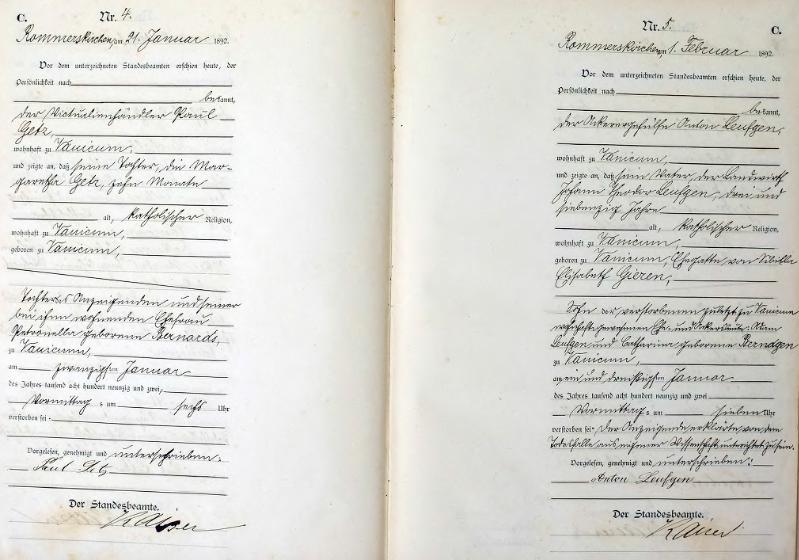 C.
Nr. 4.
Rommerskirchen, am 21. Januar 1892.
Vor dem unterzeichneten Standesbeamten erschien heute, der
Persönlichkeit nach
bekannt,
der Victualienhändler Paul
Getz
wohnhaft zu Vanicum,
und zeigte an, daß seine Tochter, die Mar-
garetha Getz, zehn Monate
alt, katholischer Religion,
wohnhaft zu Vanicum,
geboren zu Vanicum,
Tochter des Anzeigenden und seiner
bei ihm wohnenden Ehefrau
Petronella geborene Bernards,
zu Vanicum,
am zwanzigsten Januar
des Jahres tausend acht hundert neunzig und zwei,
Vormittags um sechs Uhr
verstorben sei.
Vorgelesen, genehmigt und unterschrieben.
Paul Getz
Der Standesbeamte.
Kaiser
Nr. 5.
C.
Rommerskirchen, am 1. Februar 1892.
Vor dem unterzeichneten Standesbeamten erschien heute, der
Persönlichkeit nach
bekannt,
der Ackergehülfe Anton Leufgen,
wohnhaft zu Vanicum,
und zeigte an, daß sein Vater, der Landwirth
Johann Theodor Leufgen, drei und
siebenzig Jahre
alt, katholischer Religion,
wohnhaft zu Vanicum,
geboren zu Vanicum, Ehegatte von Sibilla
Elisabeth Giezen,
Sohn der verstorbenen zuletzt zu Vanicum
wohnhaft gewesenen Ehe- und Ackersleute
Leufgen und Catharina geborene Berndgen
zu Vanicum,
am ein und dreißigsten Januar
des Jahres tausend acht hundert neunzig und zwei
Vormittags um sieben Uhr
verstorben sei. Der Anzeigende erklärte von dem
Todesfalle aus eigener Wissenschaft unterrichtet zu sein.
Vorgelesen, genehmigt und unterschrieben:
Anton Leufgen
Der Standesbeamte.
Kaiser